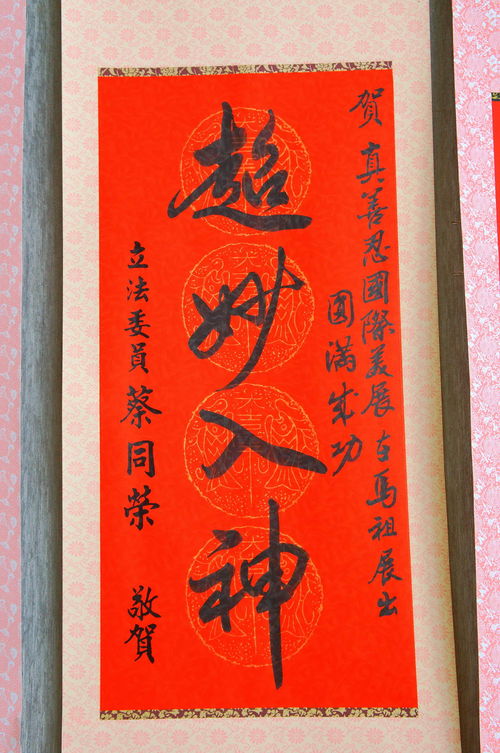 賀 真善忍國際美展在馬祖展出
圓滿成功
超妙入神
立法委員 蔡同榮 敬賀